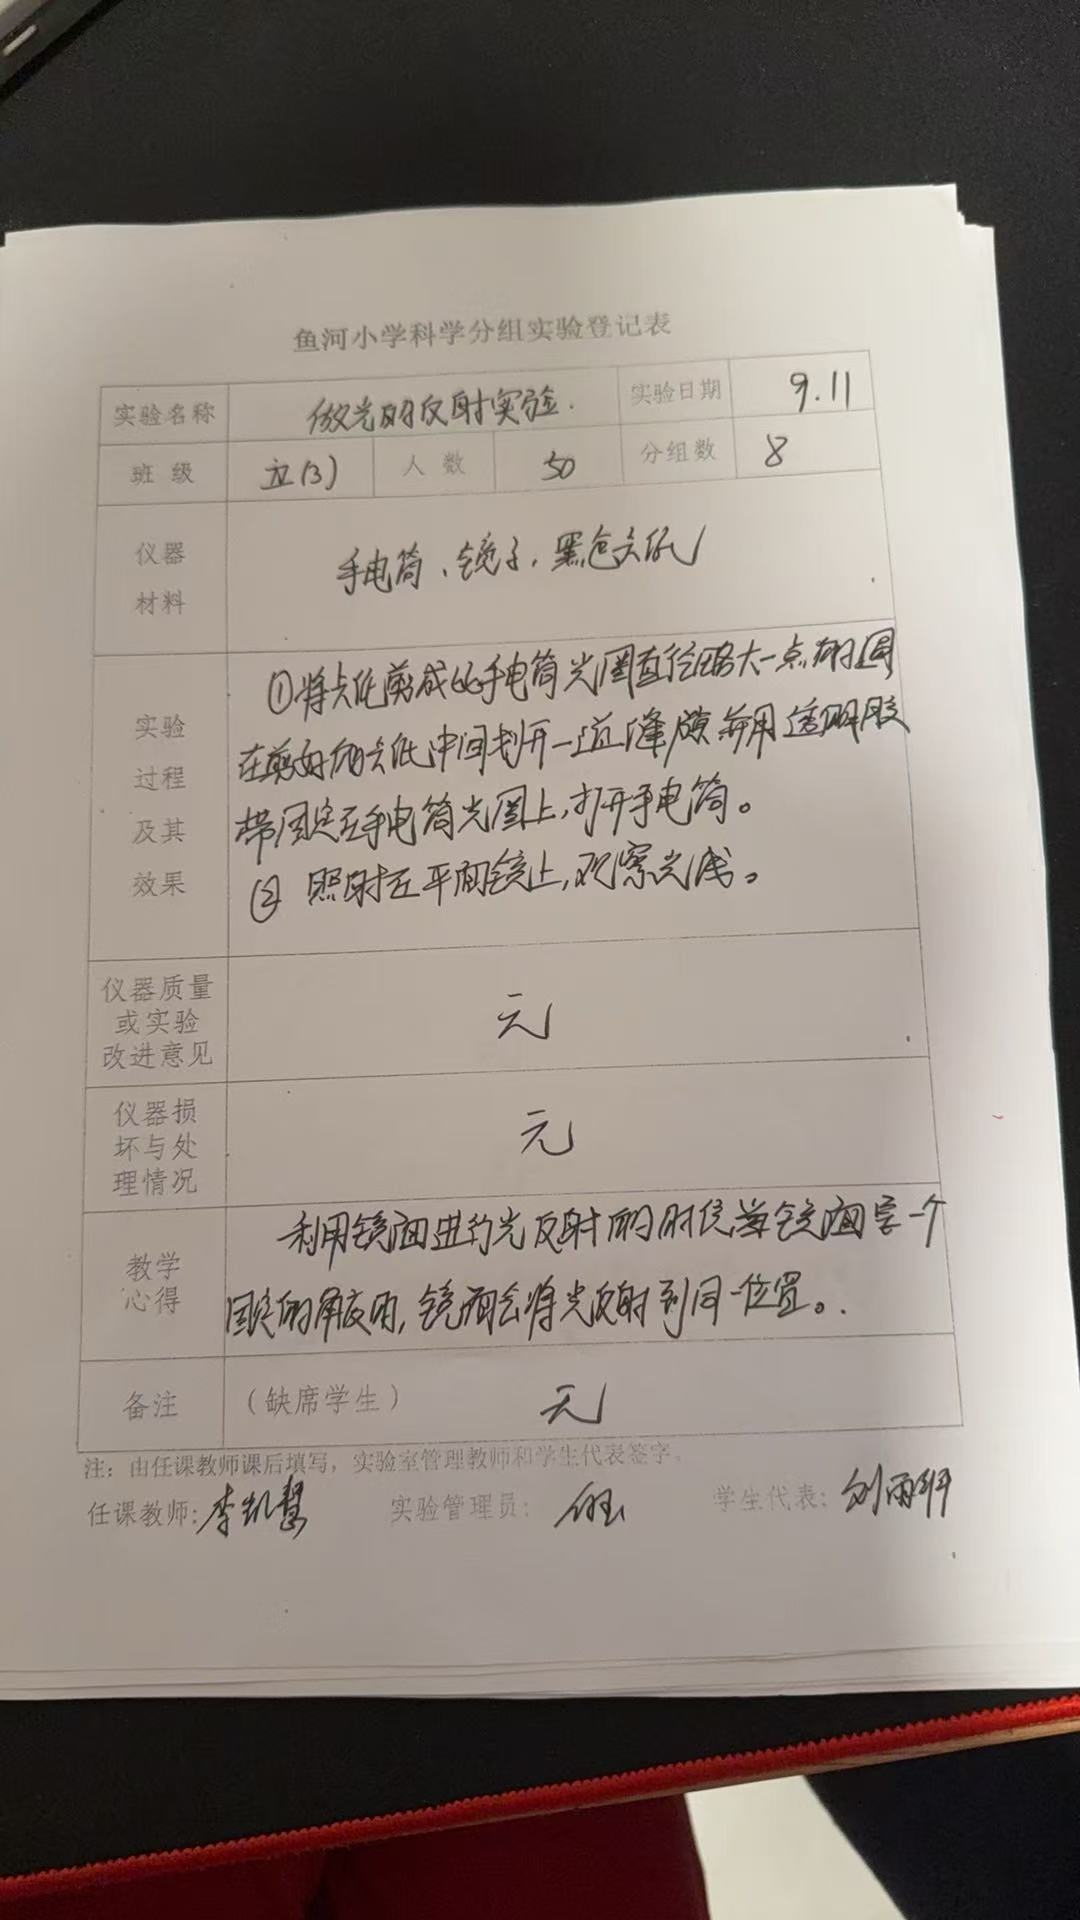 鱼河小学科学分组实验登记表
实验名称 做光的反射实验. 实验日期 9.11
班级 五(3) 人数 50 分组数 8
仪器
材料 手电筒、镜子、黑色卡纸
实验
过程
及其
效果
①将卡纸剪成比手电筒光圈直径略大一点的圆
在剪好的卡纸中间划开一道缝隙并用透明胶
带固定在手电筒光圈上,打开手电筒。
② 照射在平面镜上,观察光线。
仪器质量
或实验
改进意见 无
仪器损
坏与处
理情况 无
教学
心得
利用镜面进行光反射的时候当镜面呈一个
固定的角度时,镜面会将光反射到同一位置。.
备注 (缺席学生) 无
注:由任课教师课后填写,实验室管理教师和学生代表签字。
任课教师:李凯慧 实验管理员: 学生代表:刘雨